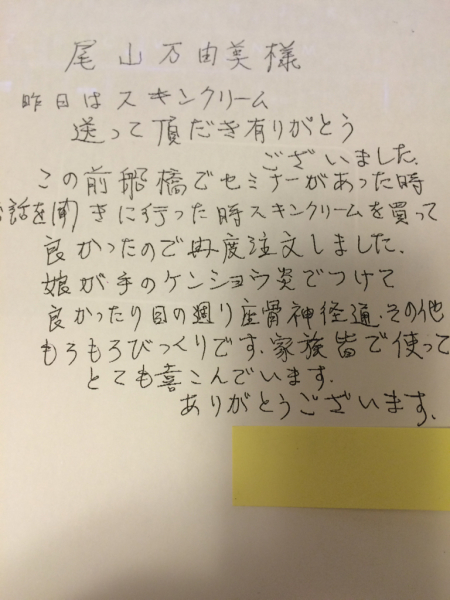 尾山万由美様
昨日はスキンクリーム
送って頂だき有りがとう
ございました.
この前船橋でセミナーがあった時
お話を聞きに行った時スキンクリームを買って
良かったので再度注文しました.
娘が手のケンショウ炎でつけて
良かったり目の週り座骨神経通.その他
もろもろびっくりです.家族皆で使って
とても喜こんでいます.
ありがとうございます.